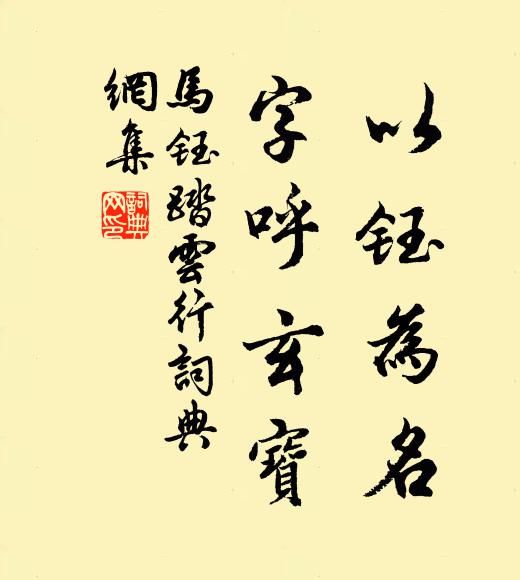 以鈺為名
字呼玄寶
馬鈺踏雲行詞典
網集
詞典
网印